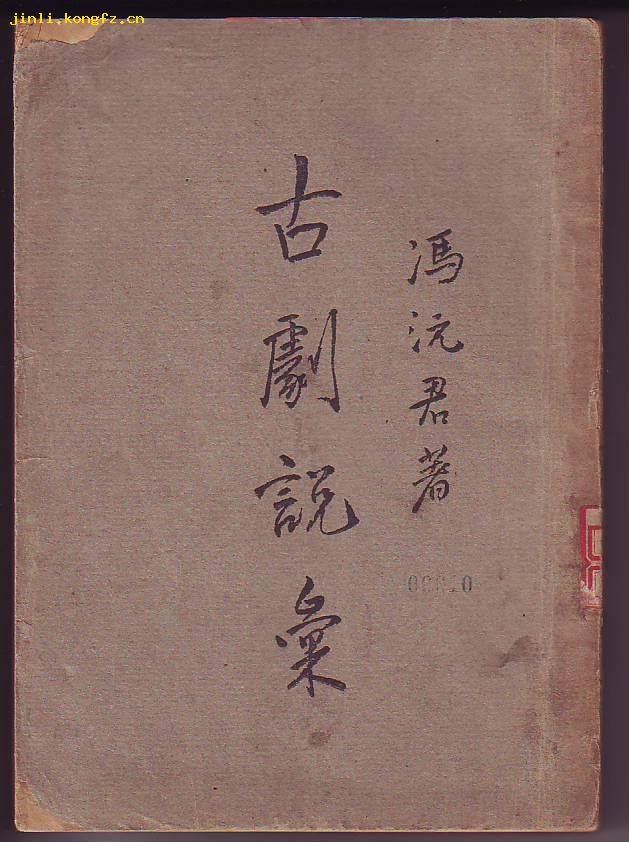 jinli.kongfz.cn
馮沅君著
古劇説彙